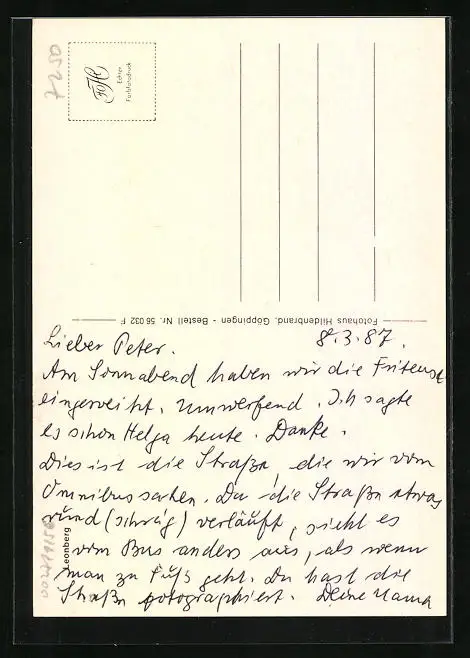 7250
FH
Echter
Farbfotodruck
Fotohaus Hildenbrand, Göppingen - Bestell Nr. 56 032 F
Leonberg
Lieber Peter. 8.3.87.
Am Sonnabend haben wir die Friteuse
eingeweiht. Umwerfend. Ich sagte
es schon Helga heute. Danke.
Dies ist die Straße, die wir vom
Omnibus sahen. Da die Straße etwas
rund (schräg) verläuft, sieht es
vom Bus anders aus, als wenn
man zu Fuß geht. Du hast die
Straße fotographiert. Deine Mama